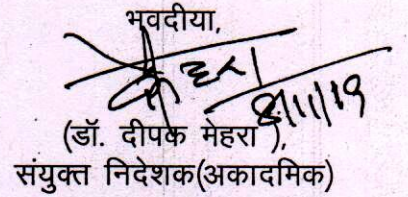 भवदीया,
8/11/19
(डॉ. दीपक मेहरा ),
संयुक्त निदेशक(अकादमिक)